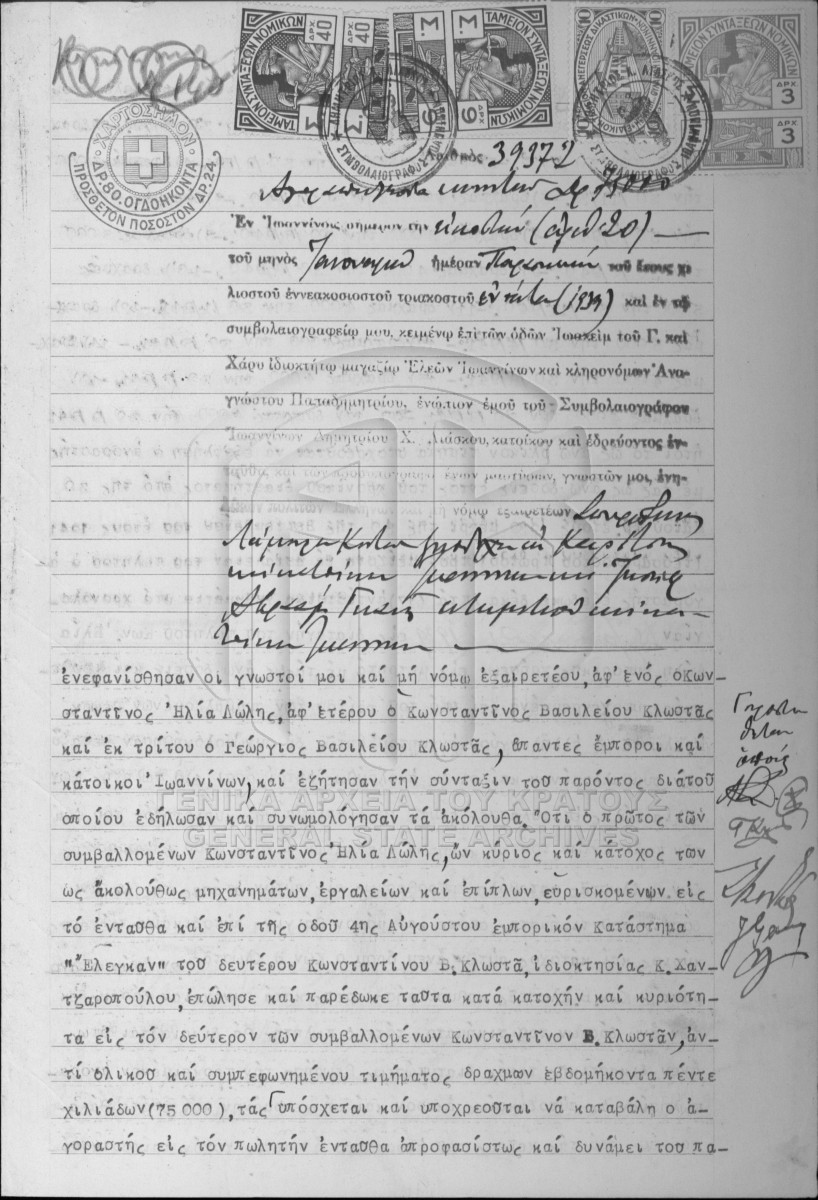 ΤΑΜΕΙΟΝ ΣΥΝΤΑΞΕΩΝ ΝΟΜΙΚΩΝ
ΔΡΧ 40
ΤΑΜΕΙΟΝ ΣΥΝΤΑΞΕΩΝ ΝΟΜΙΚΩΝ
ΔΡΧ 6
ΤΑΜΕΙΟΝ ΣΥΝΤΑΞΕΩΝ ΝΟΜΙΚΩΝ
ΔΡΧ 3
ΧΑΡΤΟΣΗΜΟΝ
ΔΡ. 80. ΟΓΔΟΗΚΟΝΤΑ
ΠΡΟΣΘΕΤΟΝ ΠΟΣΟΣΤΟΝ ΔΡ. 24.
Ἀριθμὸς 39372
Ἀγοραπωλησία κινητῶν Δρ 75000
Ἐν Ἰωαννίνοις σήμερον τὴν εἰκοστὴν (ἀριθ 20)
τοῦ μηνὸς Ἰανουαρίου ἡμέραν Παρασκευὴν τοῦ ἔτους χι-
λιοστοῦ ἐννεακοσιοστοῦ τριακοστοῦ ἐννάτου (1939) καὶ ἐν τῷ
συμβολαιογραφείῳ μου, κειμένῳ ἐπὶ τῶν ὁδῶν Ἰωακεὶμ τοῦ Γ. καὶ
Χάρυ ἰδιοκτήτῳ μαγαζίῳ Ἐλεῶν Ἰωαννίνων καὶ κληρονόμων Ἀνα-
γνώστου Παπαδημητρίου, ἐνώπιον ἐμοῦ τοῦ Συμβολαιογράφου
Ἰωαννίνων Δημητρίου Χ. Λιάσκου, κατοίκου καὶ ἑδρεύοντος ἐν-
ταῦθα καὶ τῶν μαρτύρων, γνωστῶν μοι, ἐνη-
καὶ μὴ νόμῳ ἐξαιρετέων
ἐνεφανίσθησαν οι γνωστοί μοι καί μή νόμω ἐξαιρετέου, ἀφ'ἑνός οΚων-
σταντῖνος Ἠλία Λώλης, ἀφ'ἑτέρου ὁ Κωνσταντῖνος Βασιλείου Κλωστᾶς
καί ἐκ τρίτου ὁ Γεώργιος Βασιλείου Κλωστᾶς, ἅπαντες ἔμποροι καί
κάτοικοι Ἰωαννίνων, καί ἐζήτησαν τήν σύνταξιν τοῦ παρόντος διάτοῦ
ὁποίου ἐδήλωσαν καί συνωμολόγησαν τά ἀκόλουθα. Ὅτι ὁ πρῶτος τῶν
συμβαλλομένων Κωνσταντῖνος Ἠλία Λώλης, ὤν κύριος καί κάτοχος των
ως ἀκολούθως μηχανημάτων, ἐργαλείων καί ἐπίπλων, εὑρισκομένων εἰς
τό ἐνταῦθα καί ἐπί τῆς ὁδοῦ 4ης Αὐγούστου ἐμπορικόν Κατάστημα
"Ἐλεγκαν" τοῦ δευτέρου Κωνσταντίνου Β. Κλωστᾶ, ἰδιοκτησίας Κ. Χαν-
τζαροπούλου, ἐπώλησε καί παρέδωκε ταῦτα κατά κατοχήν καί κυριότη-
τα εἰς τόν δεύτερον τῶν συμβαλλομένων Κωνσταντῖνον Β. Κλωστᾶν, ἀν-
τί ὁλικοῦ και συμπεφωνημένου τιμήματος δραχμων ἑβδομήκοντα πέντε
χιλιάδων (75 000), τάς ὑπόσχεται καί υποχρεοῦται νά καταβάλη ο ἀ-
γοραστής εἰς τόν πωλητήν ἐνταῦθα ἀπροφασίστως καί δυνάμει τοῦ πα-
ΓΕΝΙΚΑ ΑΡΧΕΙΑ ΤΟΥ ΚΡΑΤΟΥΣ
GENERAL STATE ARCHIVES